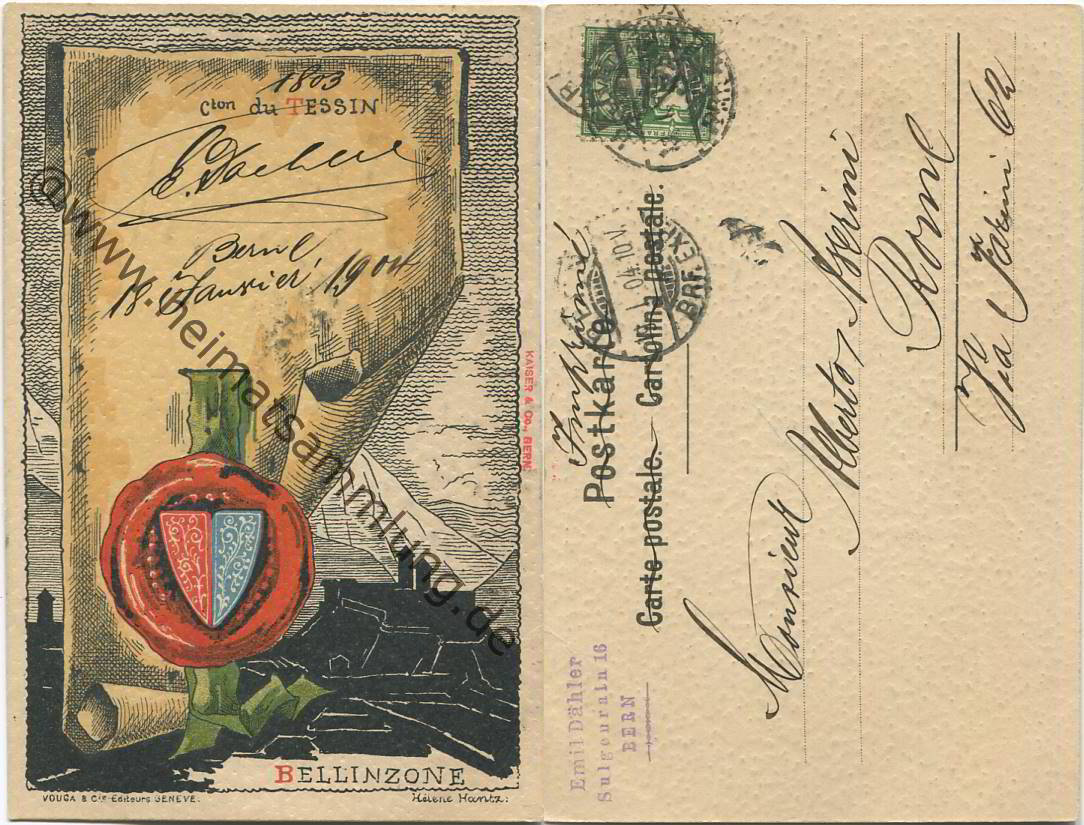 1803
Cton du TESSIN
E. Dæhler
Berne
18. Janvier 1904
@www.heimatsammlung.de
BELLINZONE
VOUGA & Cie Editeurs GENÈVE.
Hélène Hantz.
KAISER & Co., BERN.
Imprimé
Postkarte.
Carte postale. Cartolina postale.
04.10 V.
BRF. EXP.
Monsieur
Alberto
Rome
Via
Emil Dähler
Sulgenrain 16
BERN